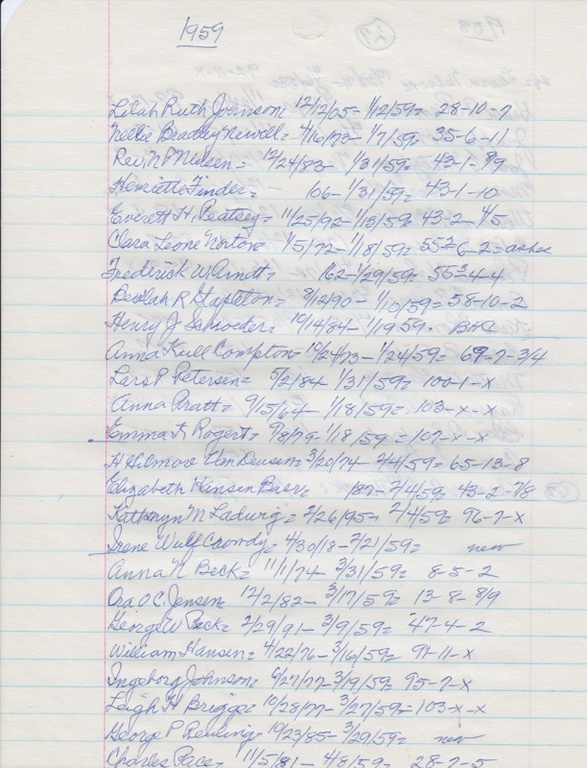 1959
Lilah Ruth Johnson 12/12/05 - 1/12/59 = 28-10-7
Nellie Bradley Newell = 4/16/73 - 1/7/59 = 35-6-11
Rev. N P Nielsen = 12/24/83 - 1/31/59 = 43-1-8/9
Henriette Finder = - 106 - 1/31/59 = 43-1-10
Everett H. = 11/25/92 - 1/15/59 = 43-2-4/5
Clara Leone Norton 1/5/72 - 1/18/59 = 55 6-2 = ashes
Frederick W Arndt = 1/29/59 = 55 4-4
Beulah R Stapleton = 8/12/90 - 1/10/59 = 58-10-2
Henry J Schroeder = 10/14/84 - 1/19 59 -
Anna Kull Compton 10/24/73 - 1/24/59 = 69-7-3/4
Lars P Petersen = 5/2/84 1/31/59 = 100-1-x
Anna Pratt = 9/15/64 - 1/18/59 = 103-x-x
Emma F. Rogert = 9/8/79 - 1/18/59 = 107-x-x
H Hilmore Van Deusen = 3/20/74 - 2/4/59 = 65-13-8
Elizabeth Hansen Baer = - 2/4/59 = 43-2-7/8
Katheryn M Ladwig = 2/26/95 - 2/4/59 = 96-7-x
Irene Wulf Coondy = 4/30/18 - 2/21/59 = new
Anna N Beck = 11/1/74 - 3/31/59 = 8-5-2
Ora O C. Jensen 12/2/82 - 3/17/59 = 13-8-8/9
George W Beck = 2/29/91 - 3/9/59 = 47-4-2
William Hansen = 4/22/76 - 3/16/59 = 91-11-x
Ingeborg Johnson = 6/27/77 - 3/19/59 = 95-7-x
Leigh H Briggs = 10/28/77 - 3/27/59 = 103-x-x
George P Reuling = 10/23/85 - 3/29/59 = new
Charles Pace = 11/5/81 - 4/8/59 = 28-7-5